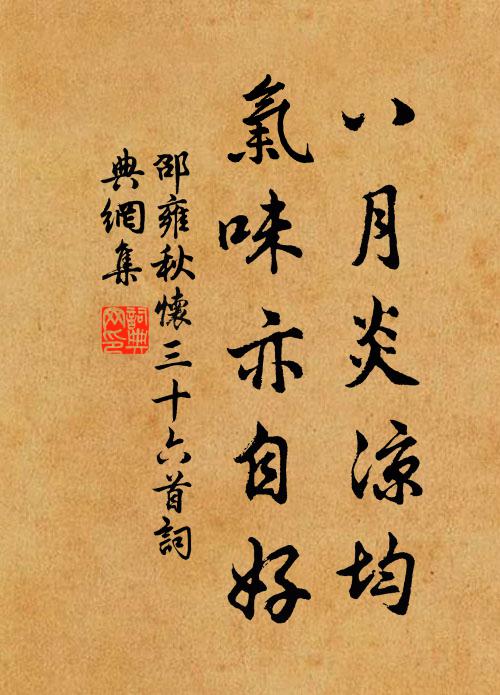 八月炎涼均
氣味亦自好
邵雍秋懷三十六首詞
典網集
詞典
网印